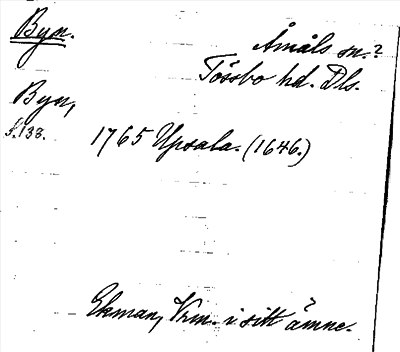 Byn.
Åmåls sn.?
Tössbo hd. Dls.
Byn,
s. 138.
1765 Upsala. (1646.)
Ekman, Vrm. i sitt ämne.